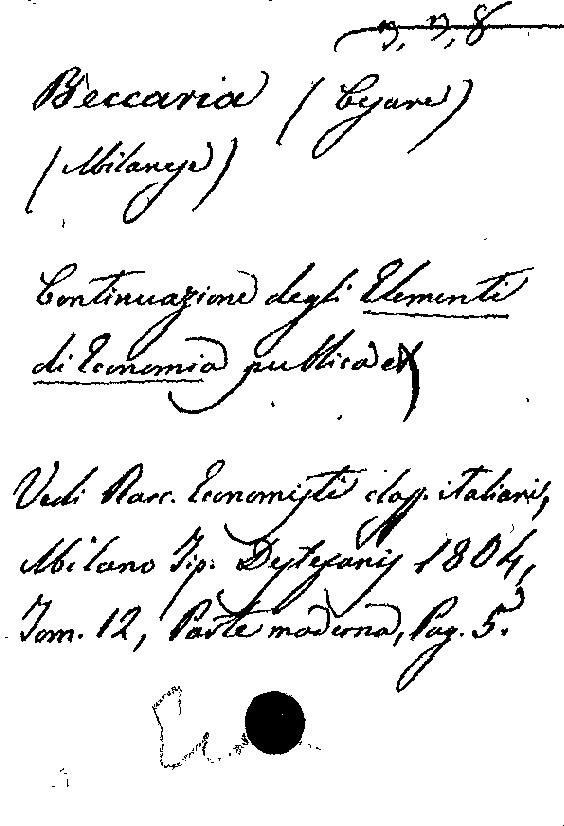 n, n, 8
Beccaria (Cesare)
(Milanese)
Continuazione degli Elementi
di Economia pubblica
Vedi Racc. Economisti class. italiani,
Milano Tip. Destefanis 1804,
Tom. 12, Parte moderna, Pag. 5.